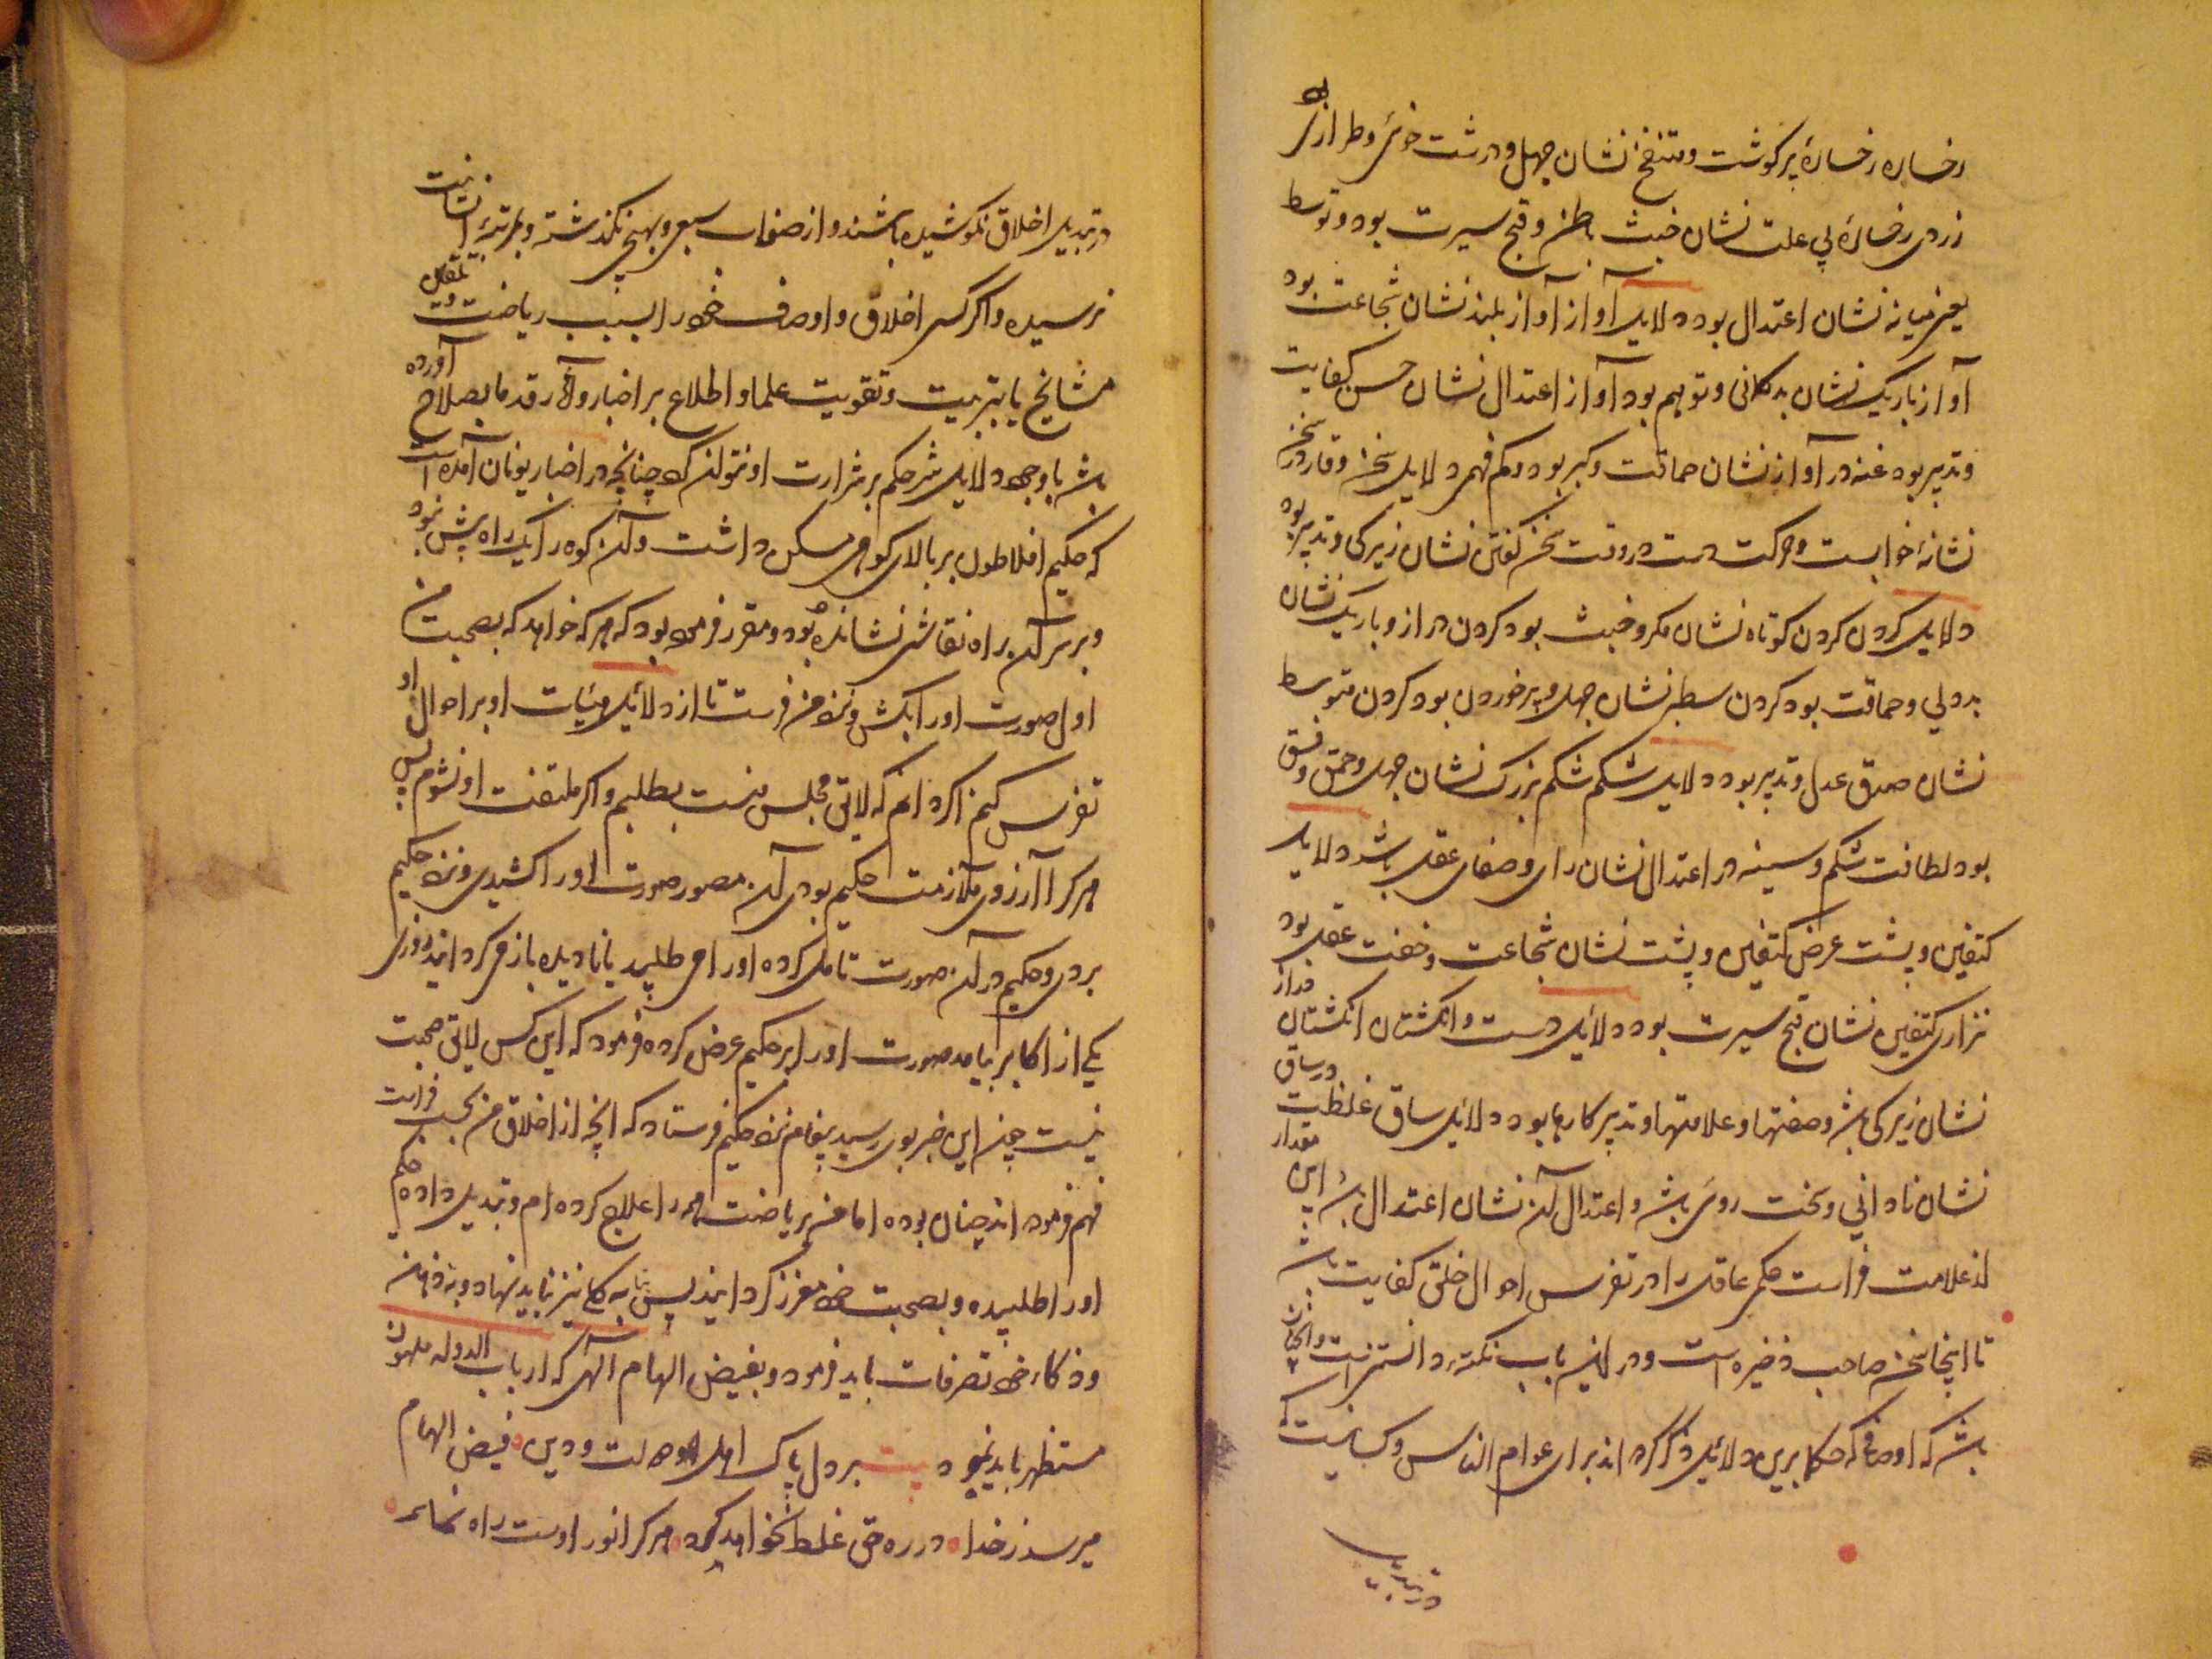 رخساره رخسارهٔ پر کوشت و منتفخ نشان جهل و درشت خوئی بود و طراز
زردی رخسارهٔ بی علت نشان خبث باطن و قبح سیرت بود و توسط
یعنی میانه نشان اعتدال بود دلایل آواز آواز بلند نشان شجاعت بود
آواز باریک نشان بدکمانی و توهم بود آواز اعتدال نشان حسن کفایت
و تدبیر بود غنه در آواز نشان حماقت و کبر بود و کم فهم دلایل سخن وقار در سخن
نشانهٔ خوابست و حرکت دست در وقت سخن کفتن نشان زیرکی و تدبیر بود
دلایل کردن کردن کوتاه نشان مکر و خبث بود کردن دراز و باریک نشان
بددلی و حماقت بود کردن سطبر نشان جهل و پرخوردن بود کردن متوسط
نشان صدق عدل و تدبیر بود دلایل شکم شکم بزرک نشان جهل و حمق و فسق
بود لطافت شکم و سینه در اعتدال نشان رای و صفای عقل باشد دلایل
کتفین و پشت عرض کتفین و پشت نشان شجاعت و خفت عقل بود
نزاری کتفین نشان قبح سیرت بود دلائل دست و انکشتان انکشتان دراز
نشان زیرکی باشد و صفتها و علامتها و تدبیر کارها بود دلائل ساق غلظت در ساق
نشان نادانی و سخت روئی باشد و اعتدال آن نشان اعتدال باشد این مقدار
از علامت فراست حکم عاقل را در تفرس احوال خلق کفایت باشد
تا اینجا سخن صاحب ذخیره است و در این باب نکته دانستنی است و آن
باشد که اوصافی که حکما برین دلائل ذکر کرده اند برای عوام الناس و کسانیست که
در تبدیل
در تبدیل اخلاق نکوشیده باشند و از صفات سبعی و بهیمی نکذشته و بمرتبهٔ انسانیت
نرسیده و اکر کسی اخلاق و اوصاف خود را بسبب ریاضت و تلقین
مشایخ یا بتربیت و تقویت علما و اطلاع بر اخبار و آثار قدما بصلاح آورده
باشد با وجود دلایل شر حکم بر شرارت او نتوان کرد چنانچه در اخبار یونان آمده است
که حکیم افلاطون بر بالای کوهی مسکن داشت و آن کوه را یک راه بیش نبود
و بر سر آن راه نقاشی نشانده بود و مقرر فرموده بود که هر که خواهد که بصحبت من
اول صورت او را بکش و نزد من فرست تا از دلائل هیئات او بر احوال او
تفرس کنم اکر دانم که لایق مجلس منست بطلبم و اکر ملتفت او نشوم پس
هر کرا آرزوی ملازمت حکیم بودی آن مصور صورت او را کشیدی و نزد حکیم
بردی و حکیم در آن صورت تامل کرده او را می طلبید یا نادیده باز می کردانید روزی
یکی از اکابر بیامد صورت او را بر حکیم عرض کرده فرمود که این کس لایق صحبت
نیست چون این خبر بوی رسید پیغام نزد حکیم فرستاد که انچه از اخلاق من بحسب فراست
فهم فرموده اند چنان بوده اما من بریاضت همه را علاج کرده ام و تبدیل داده حکیم
او را طلبیده و بصحبت خود معزز کردانید پس بنا به کلی نیز نباید نهاد و به ذهن
و ذکاء خود تصرفات باید فرمود و بفیض الهام الهی که ارباب الدوله ملهمون
مستظهر باید بود بیت بر دل پاک اهل دولت و دین فیض الهام
میرسد ز خدا در ره حق غلط نخواهد کرد هر کرا نور اوست راه نمای